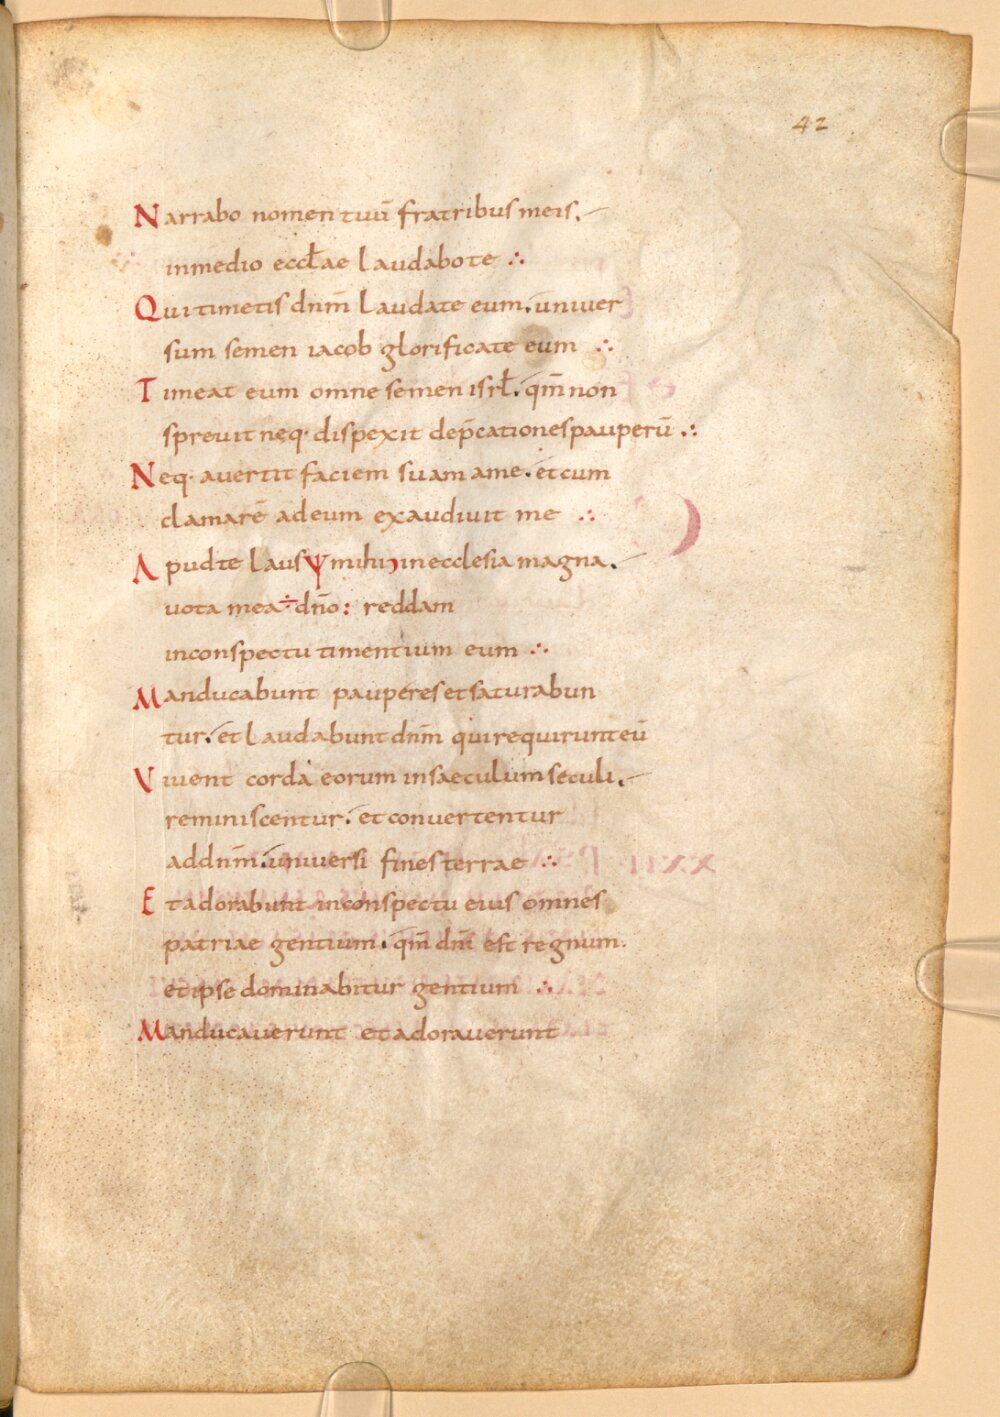 42
Narrabo nomen tuū fratribus meis.
inmedio eccłae laudabo te ∴
Qui timetis dnm̄ laudate eum. univer
sum semen iacob glorificate eum ∴
Timeat eum omne semen isrł. qm̄ non
sprevit neq· dispexit dep̄cationes pauperū ∴
Neq· avertit faciem suam ame. et cum
clamarē adeum exaudivit me ∴
Apud te laus ψ mihi inecclesia magna.
vota mea ÷ dn̄o : reddam
inconspectu timentium eum ∴
Manducabunt pauperes et saturabun
tur. et laudabunt dnm̄ qui requirunt eū
Vivent corda eorum insaeculum seculi.
reminiscentur. et convertentur
ad dnm̄. universi fines terrae ∴
Et adorabunt inconspectu eius omnes
patriae gentium. qm̄ dnī est regnum.
et ipse dominabitur gentium ∴
Manducaverunt et adoraverunt